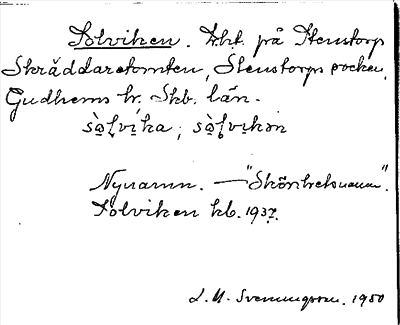 Solviken. Lht. på Stenstorp
Skräddaretomten, Stenstorps socken,
Gudhems hr. Skb. län.
sòlvika, sòlvikən
Nynamn. — "Skönhetsnamn".
Solviken kb. 1937.
L. M. Svenungsson. 1950